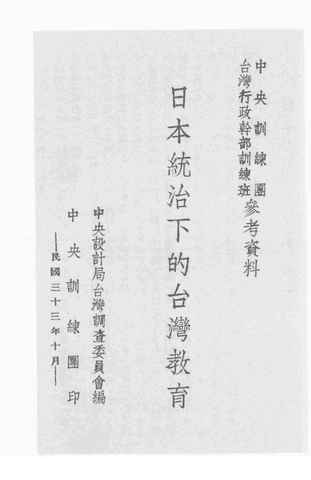 中央訓練團
台灣行政幹部訓練班
參考資料
日本統治下的台灣教育
中央設計局台灣調查委員會編
中央訓練團印
—民國三十三年十月—